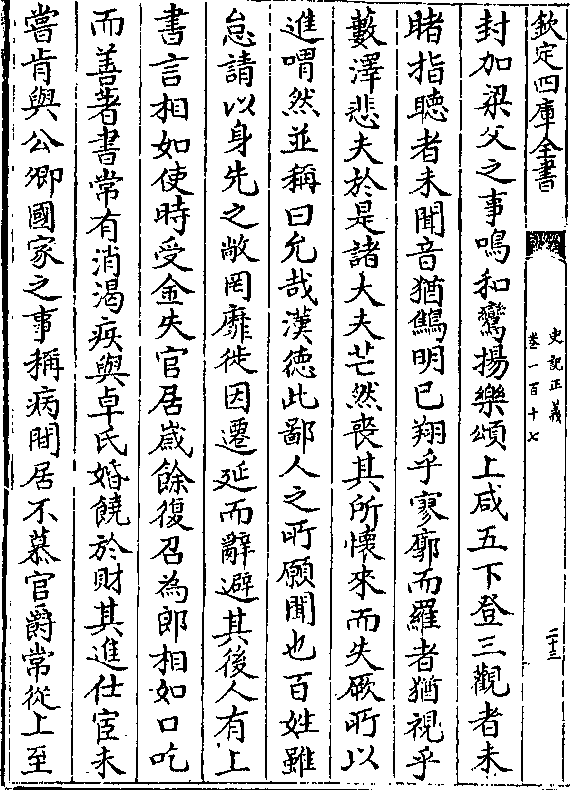 欽定四庫全書
史記正義
卷一百十七
二十三
封加梁父之事鳴和鸞揚樂頌上咸五下登三觀者未
睹指聽者未聞音猶鷦明已翔乎寥廓而羅者猶視乎
藪澤悲夫於是諸大夫芒然喪其所懷來而失厥所以
進喟然並稱曰允哉漢徳此鄙人之所願聞也百姓雖
怠請以身先之敞罔靡徙因遷延而辭避其後人有上
書言相如使時受金失官居嵗餘復召為郎相如口吃
而善著書常有消渴疾與卓氏婚饒於財其進仕宦未
嘗肯與公卿國家之事稱病閒居不慕官爵常從上至